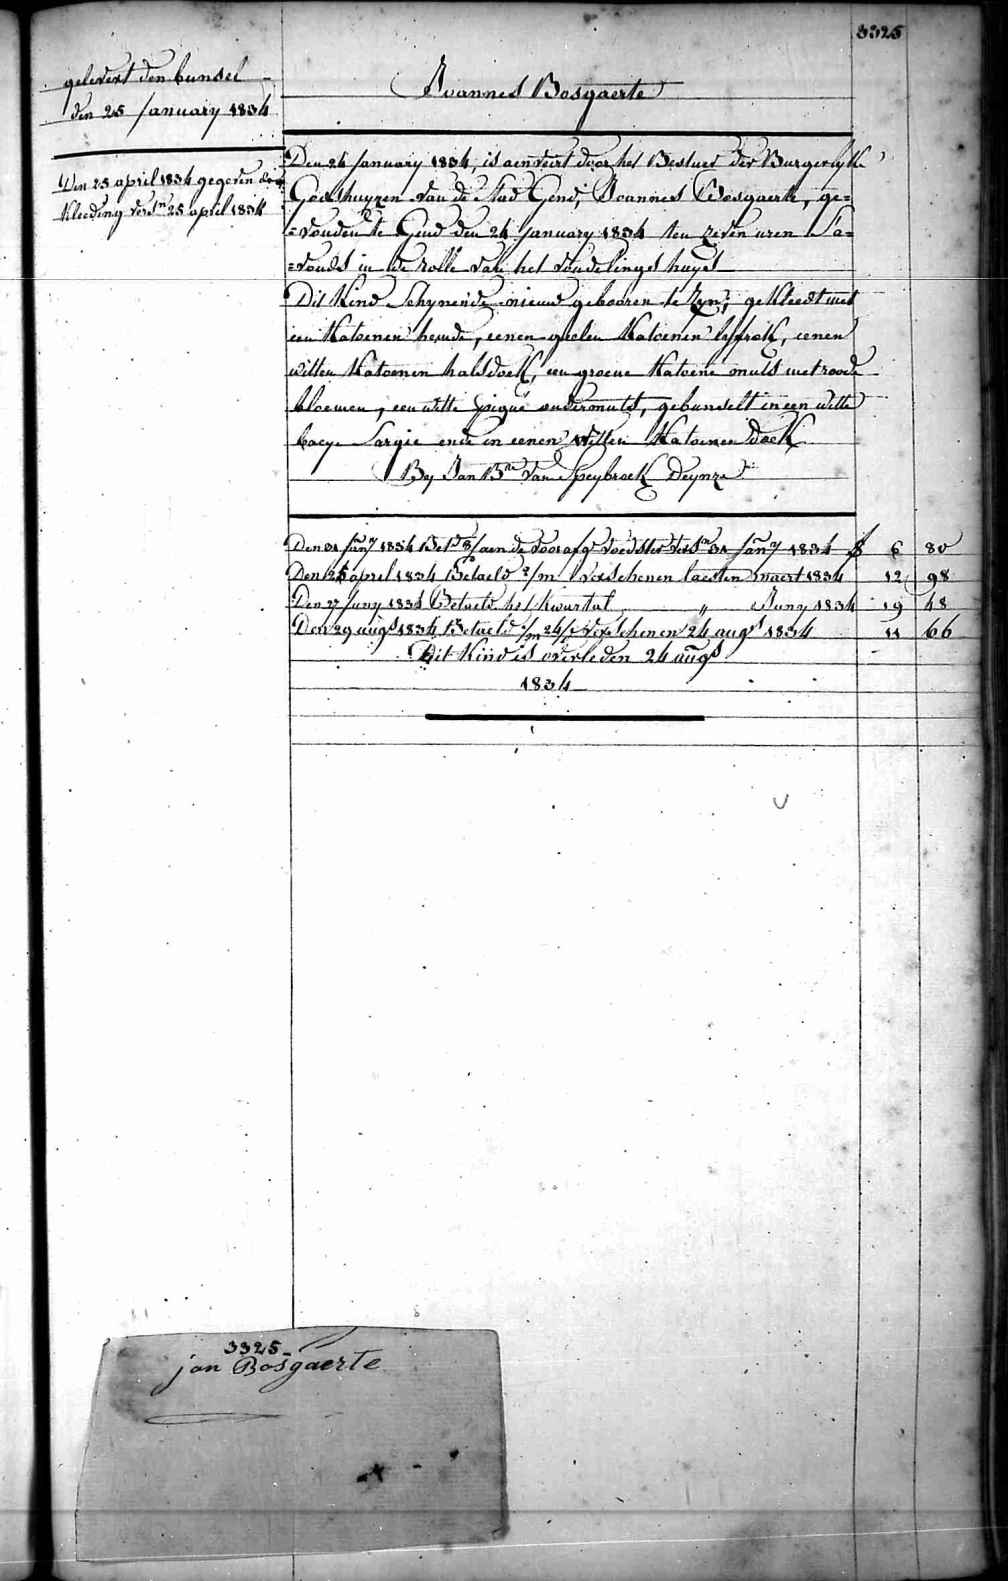 3325
gelevert den bunsel
den 25 January 1834
Den 25 april 1834 gegeven de
kleeding vers.n 25 april 1834
Joannes Bosgaerte
Den 24 January 1834, is aenveirt door het Bestuer der Burgerlyke
Godshuyzen van de Stad Gend, Joannes Bosgaerte, ge=
=vonden te Gend den 24 January 1834 ten zeven uren S'a=
=vonds in de rolle van het vondelingshuys
Dit Kind Schynende nieuw gebooren te zyn, gekleedt met
een Katoenen hemde, eenen geelen Katoenen lyfrok, eenen
witten Katoenen halsdoek, een groene Katoene muts met roode
bloemen, een witte piqué ondermuts, gebunselt in een witte
baeye Sargie ende in eenen witten Katoenen doek
By Jan B.te Van Speybroek Deynze
Den 31 Jan.y 1834 Bet.d aen de voorafg.e voedster vers.n 31 Jan.y 1834 6 80
Den 25 april 1834 Betaeld 2/m verschenen laesten maert 1834 12 98
Den 27 Juny 1834 Betaeld het kwartal " Juny 1834 19 48
Den 29 aug.s 1834 Betaeld 1/m 24/ verschenen 24 aug.s 1834 11 66
Dit Kind is overleden 24 aug.s
1834
3325
jan Bosgaerte